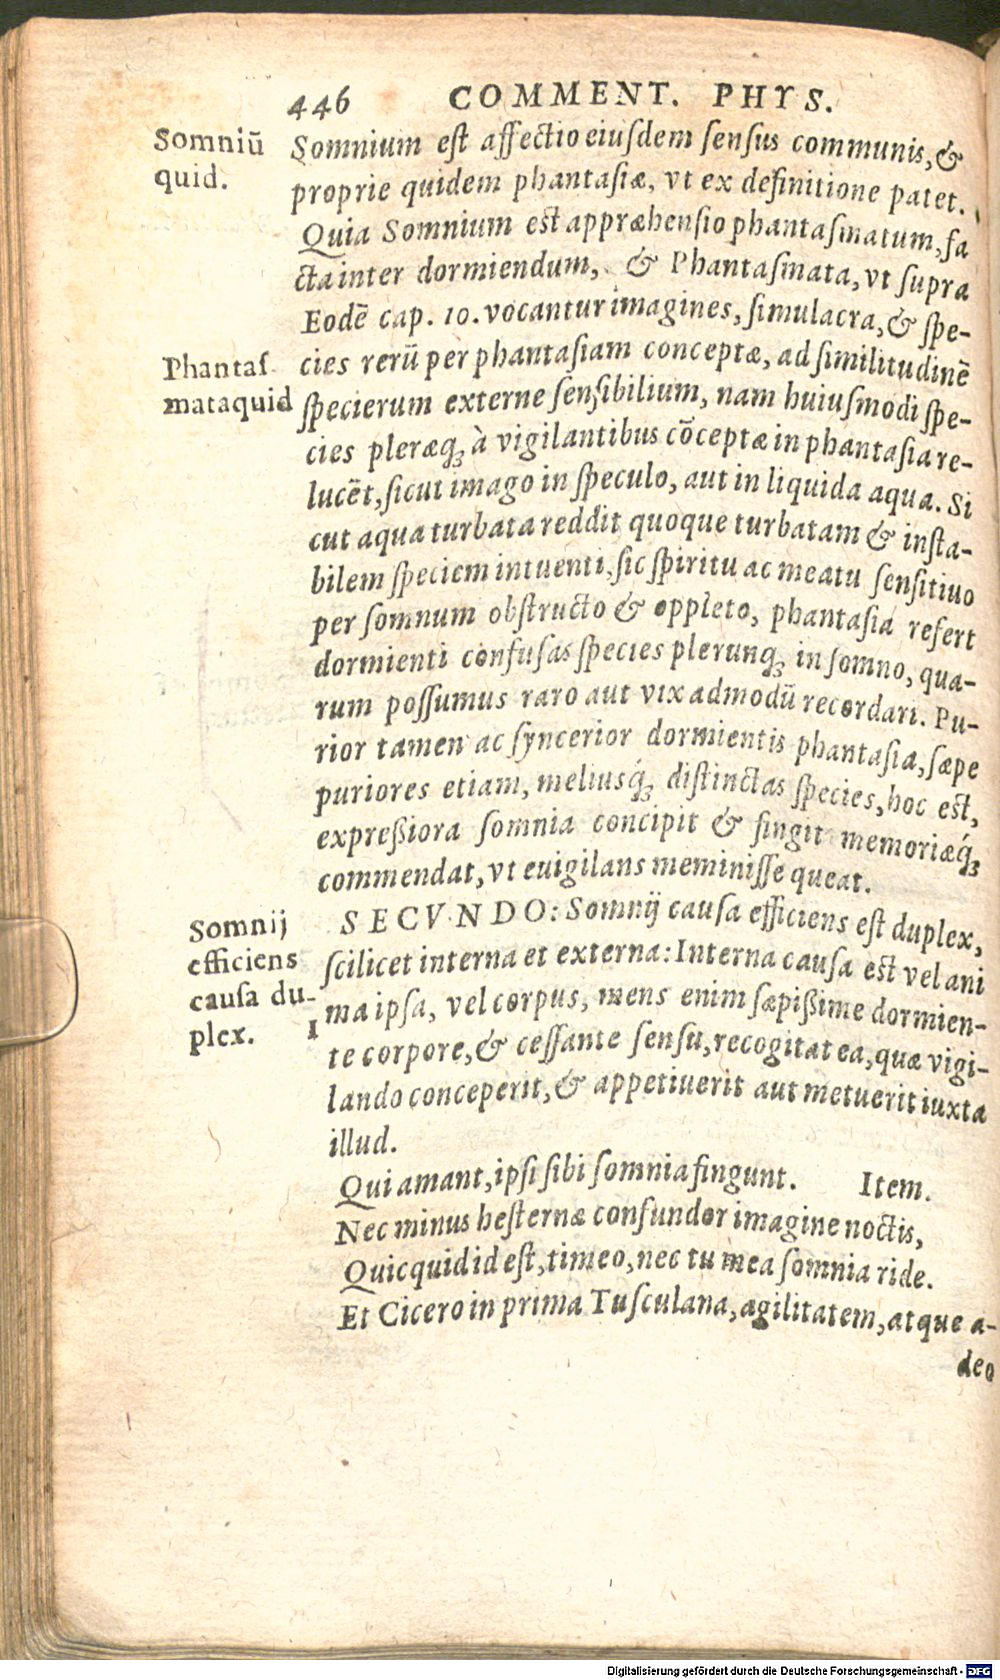 446 COMMENT. PHYS.
Somniū
quid.
Somnium eſt affectio eiuſdem ſenſus communis, &
proprie quidem phantaſiæ, vt ex definitione patet.
Quia Somnium est appræhenſio phantaſmatum, fa
cta inter dormiendum, & Phantaſmata, vt ſupra
Eodē cap. 10. vocantur imagines, ſimulacra, & ſpe-
Phantaſ
mata quid
cies rerū per phantaſiam conceptæ, ad ſimilitudinē
ſpecierum externe ſenſibilium, nam huiuſmodi ſpe-
cies pleræq; à vigilantibus cōceptæ in phantaſia re-
lucēt, ſicut imago in ſpeculo, aut in liquida aqua. Si
cut aqua turbata reddit quoque turbatam & inſta-
bilem ſpeciem intuenti, ſic ſpiritu ac meatu ſenſitiuo
per ſomnum obſtructo & oppleto, phantaſia refert
dormienti confuſas ſpecies plerunq; in ſomno, qua-
rum poſſumus raro aut vix admodū recordari. Pu-
rior tamen ac ſyncerior dormientis phantaſia, ſæpe
puriores etiam, meliusq́; diſtinctas ſpecies, hoc est,
expreßiora ſomnia concipit & fingit memoriæq́;
commendat, vt euigilans meminiſſe queat.
Somnij
efficiens
cauſa du-
plex.
SECVNDO: Somnij cauſa efficiens eſt duplex,
ſcilicet interna et externa: Interna cauſa est vel ani
1 ma ipſa, vel corpus, mens enim ſæpißime dormien-
te corpore, & ceſſante ſenſu, recogitat ea, quæ vigi-
lando conceperit, & appetiuerit aut metuerit iuxta
illud.
Qui amant, ipſi ſibi ſomnia fingunt. Item.
Nec minus heſternæ confundor imagine noctis,
Quicquid id eſt, timeo, nec tu mea ſomnia ride.
Et Cicero in prima Tuſculana, agilitatem, atque a-
deo
Digitalisierung gefördert durch die Deutsche Forschungsgemeinschaft - DFG